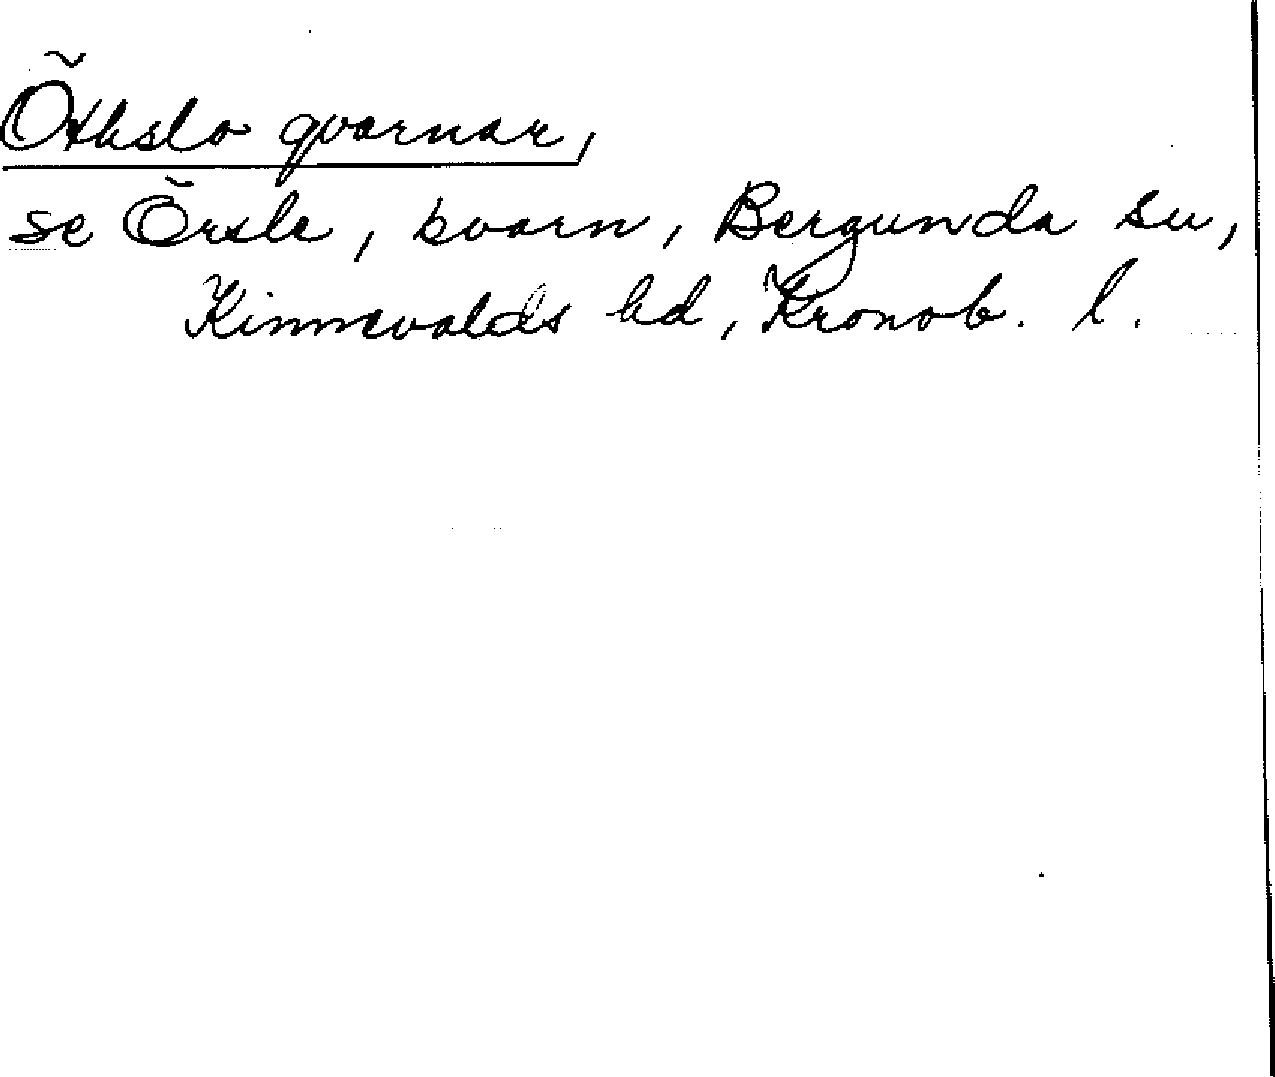 Öthslo qvarnar,
se Örsle, kvarn, Bergunda sn,
Kinnevalds hd, Kronob. l.